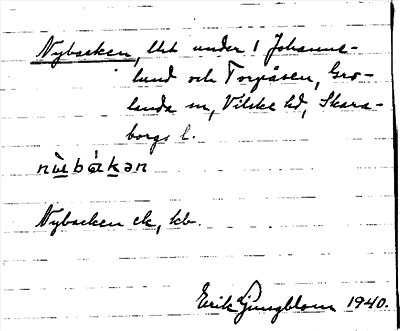 Nybacken, lht under 1 Johanne-
lund och Torpåsen, Gro-
landa sn, Vilske hd, Skara-
borgs l.
nẁbákən
Nybacken ek, kb.
Erik Ljungblom 1940.